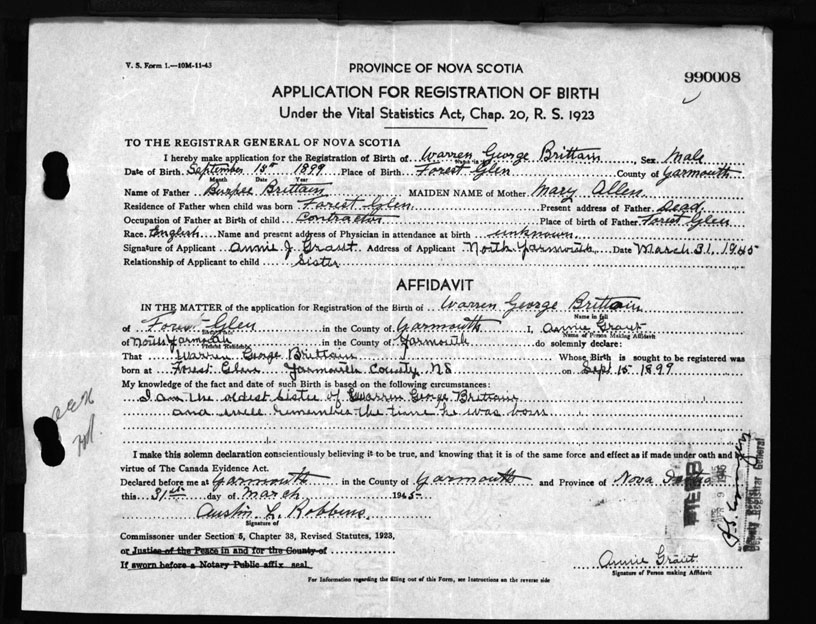 V. S. Form 1.—10M-11-43
PROVINCE OF NOVA SCOTIA
990008
APPLICATION FOR REGISTRATION OF BIRTH
Under the Vital Statistics Act, Chap. 20, R. S. 1923
TO THE REGISTRAR GENERAL OF NOVA SCOTIA
I hereby make application for the Registration of Birth of Warren George Brittain, Sex Male
Name in full
Date of Birth September 15th 1899 Place of Birth Forest Glen County of Yarmouth
Month Date Year
Name of Father Burpee Brittain MAIDEN NAME of Mother Mary Allen
Residence of Father when child was born Forest Glen Present address of Father Dead
Occupation of Father at Birth of child Contractor Place of birth of Father Forest Glen
Race English Name and present address of Physician in attendance at birth unknown
Signature of Applicant Annie J. Grant Address of Applicant North Yarmouth Date March 31, 1945
Relationship of Applicant to child Sister
AFFIDAVIT
IN THE MATTER of the application for Registration of the Birth of Warren George Brittain
Name in full
of Forest Glen in the County of Yarmouth I, Annie Grant
Birthplace
Name of Person Making Affidavit
of North Yarmouth in the County of Yarmouth do solemnly declare:
Present Residence
That Warren George Brittain Whose Birth is sought to be registered was
born at Forest Glen Yarmouth County, NS on Sept 15 1899
My knowledge of the fact and date of such Birth is based on the following circumstances:
I am the oldest Sister of Warren George Brittain
and well remember the time he was born
I make this solemn declaration conscientiously believing it to be true, and knowing that it is of the same force and effect as if made under oath and by
virtue of The Canada Evidence Act.
Declared before me at Yarmouth in the County of Yarmouth and Province of Nova Scotia
this 31st day of March 1945
Austin L. Robbins
Signature of
Commissioner under Section 5, Chapter 38, Revised Statutes, 1923,
or Justice of the Peace in and for the County of
If sworn before a Notary Public affix seal
Annie Grant
Signature of Person making Affidavit
For Information regarding the filling out of this Form, see Instructions on the reverse side
Deputy Registrar General